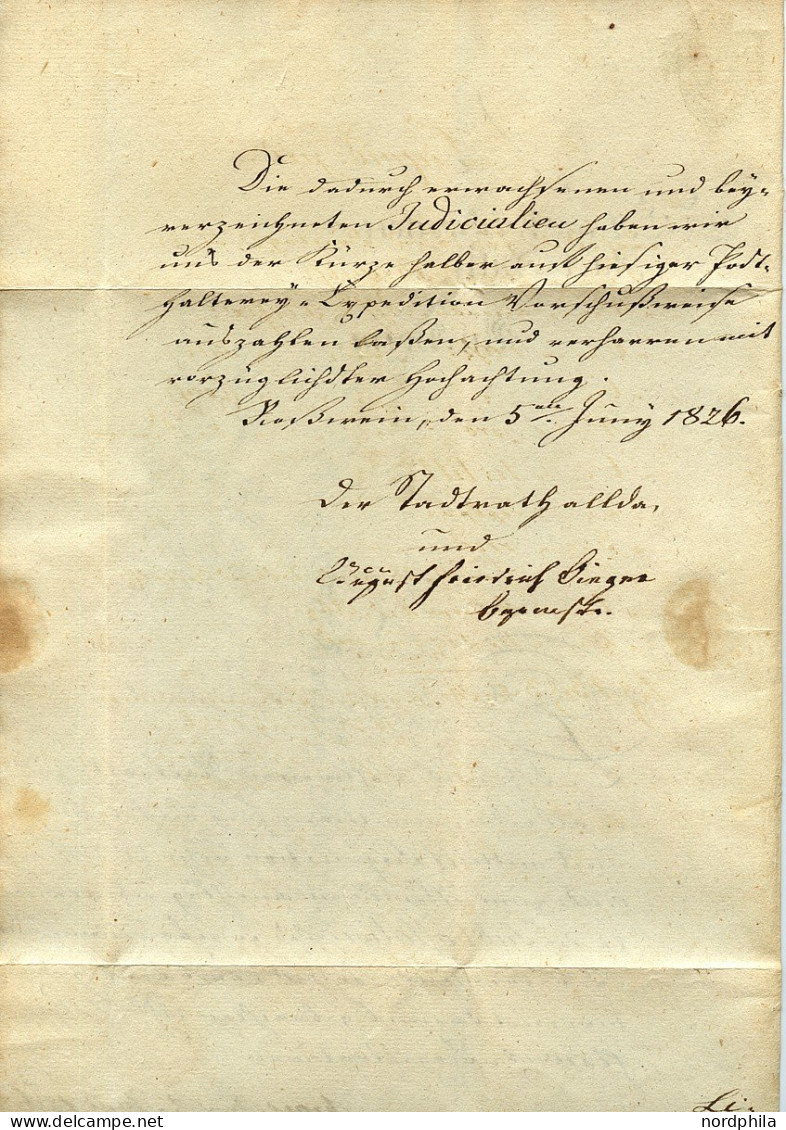 Die dadurch erwachsenen und bey-
verzeichneten Judicialien haben wir
uns der Kürze halber aus hiesiger Post-
halterey-Expedition Vorschußweise
auszahlen laßen, und verharren mit
vorzüglichster Hochachtung.
Roßwein, den 5. Juny 1826.
Der Stadtrath allda,
und
August Friedrich
Li-
nordphila